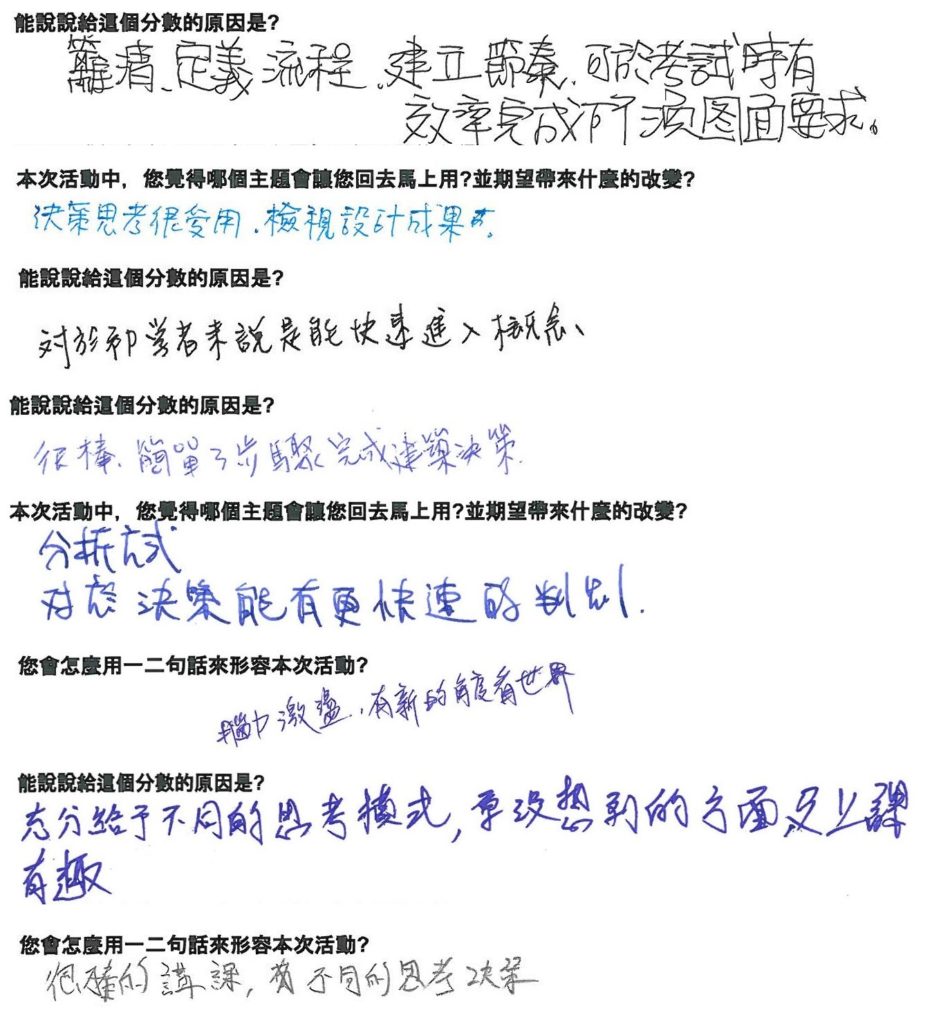 能說說給這個分數的原因是?
釐清、定義流程、建立節奏，可於考試時有
效率完成所需圖面要求。
本次活動中，您覺得哪個主題會讓您回去馬上用?並期望帶來什麼的改變?
決策思考很受用，檢視設計成果
能說說給這個分數的原因是?
对於初学者来說是能快速進入核概念、
能說說給這個分數的原因是?
很棒、簡單了步驟完成建築決策
本次活動中，您覺得哪個主題會讓您回去馬上用?並期望帶來什麼的改變?
分析方式
对於決策能有更快速的判別.
您會怎麼用一二句話來形容本次活動?
腦力激盪，有新的角度看世界
能說說給這個分數的原因是?
充分給予不同的思考模式，原沒想到的方面，又上課
有趣
您會怎麼用一二句話來形容本次活動?
很棒的講課，有不同的思考決策